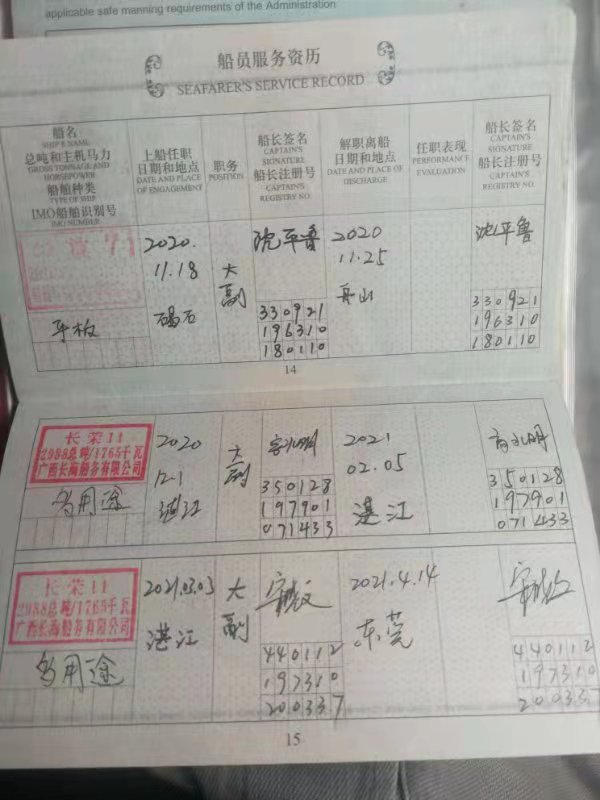 applicable safe manning requirements of the Administration
船员服务资历
SEAFARER'S SERVICE RECORD
船名
SHIP'S NAME
总吨和主机马力
GROSS TONNAGE AND
HORSEPOWER
船舶种类
TYPE OF SHIP
IMO船舶识别号
IMO NUMBER
上船任职
日期和地点
DATE AND PLACE
OF ENGAGEMENT
职务
POSITION
船长签名
CAPTAIN'S
SIGNATURE
船长注册号
CAPTAIN'S
REGISTRY NO.
解职离船
日期和地点
DATE AND PLACE OF
DISCHARGE
任职表现
PERFORMANCE
EVALUATION
船长签名
CAPTAIN'S
SIGNATURE
船长注册号
CAPTAIN'S
REGISTRY NO.
平板
2020.
11.18
碣石
大副
沈平鲁
330921
196310
180110
2020
11.25
舟山
沈平鲁
330921
196310
180110
14
长荣11
2988总吨/1765千瓦
广西长海船务有限公司
多用途
2020
12.1
湛江
大副
350128
197901
071433
2021
02.05
湛江
350128
197901
071433
长荣11
2988总吨/1765千瓦
广西长海船务有限公司
多用途
2021.03.03
湛江
大副
440112
197310
200337
2021.4.14
东莞
440112
197310
200337
15